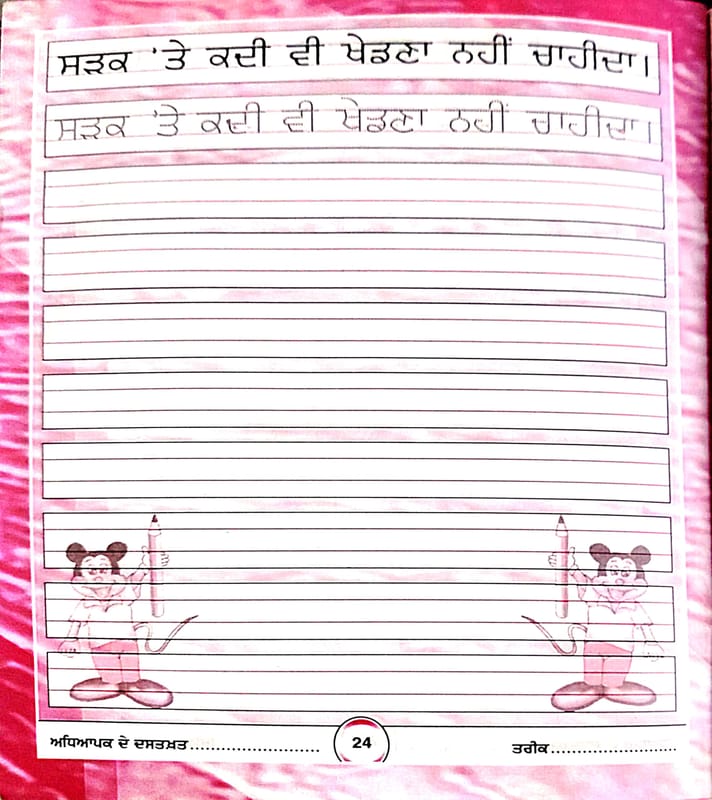 ਸੜਕ 'ਤੇ ਕਦੀ ਵੀ ਖੇਡਣਾ ਨਹੀਂ ਚਾਹੀਦਾ।
ਸੜਕ 'ਤੇ ਕਦੀ ਵੀ ਖੇਡਣਾ ਨਹੀਂ ਚਾਹੀਦਾ।
ਅਧਿਆਪਕ ਦੇ ਦਸਤਖ਼ਤ......................... 24 ਤਰੀਕ.........................